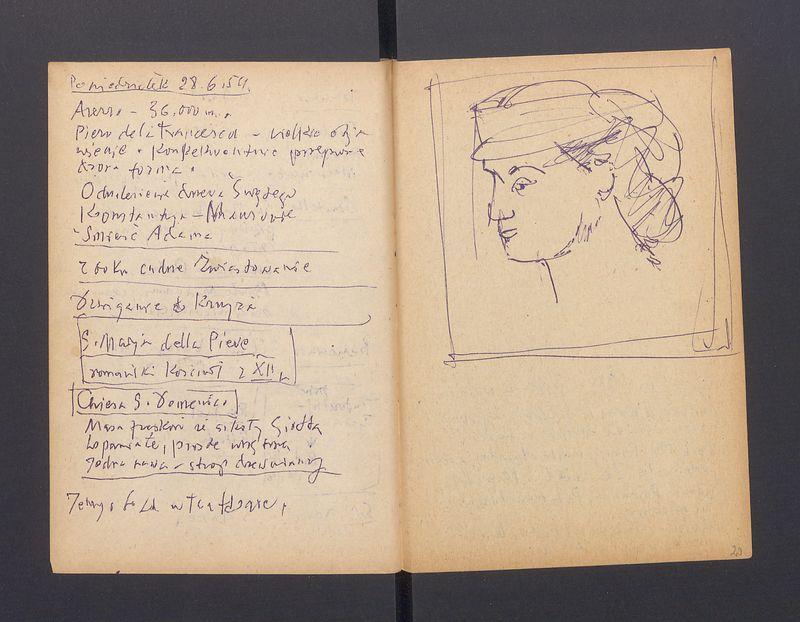 Poniedziałek 28.6.54.
Arezzo – 36.000 m.
Piero della Francesca – wielkie obja
wienie. Konsekwentnie przeprowa
dzona forma.
Odnalezienie drzewa Świętego
Konstantyn –
Śmierć Adama
z boku cudne Zwiastowanie
Dźwiganie Krzyża
S. Maria della Pieve
romański Kościół z XII w
Chiesa S. Domenico
Masa fresków ze szkoły Giotta
wspaniałe, proste wnętrze
jedna nawa – strop drewniany
20